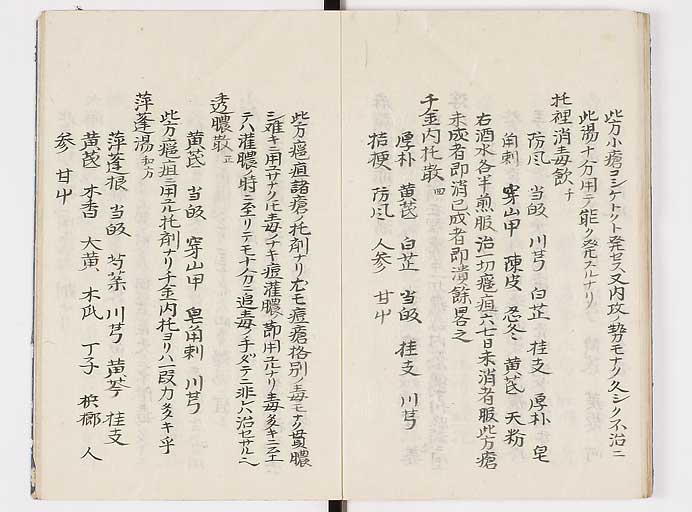 此方小瘡ヨシケトクト発セス又内攻ノ勢モナク久シク不治ニ
此湯十方用テ能ク発スルナリ
托裡消毒飲 ナ
防風 当皈 川芎 白芷 桂支 厚朴 皂
角刺 穿山甲 陳皮 忍冬 黄芪 天粉
右酒水各半煎服治一切癰疽六七日未消者服此方瘡
未成者即消已成者即潰餘畧之
千金内托散 四
厚朴 黄芪 白芷 当皈 桂支 川芎
桔梗 防風 人参 甘艸
此方癰疽諸瘡ノ托剤ナリ尤モ痘瘡格別ノ毒モナク貫膿
シ難キニ用ユサナクトモ毒ノナキ痘灌膿ノ節用ユルナリ毒多キニ至
テハ灌膿ノ時ニ至リテモ十方ニ追毒ノ手ダテニ非レハ治セサルヘ
透膿散 正
黄芪 当皈 穿山甲 皂角刺 川芎
此方癰疽ニ用ル托剤ナリ千金内托ヨリハ一段力多キ乎
萍蓬湯 和方
萍蓬根 当皈 芍薬 川芎 黄芩 桂支
黄芪 木香 大黄 木瓜 丁子 梹榔 人
参 甘艸